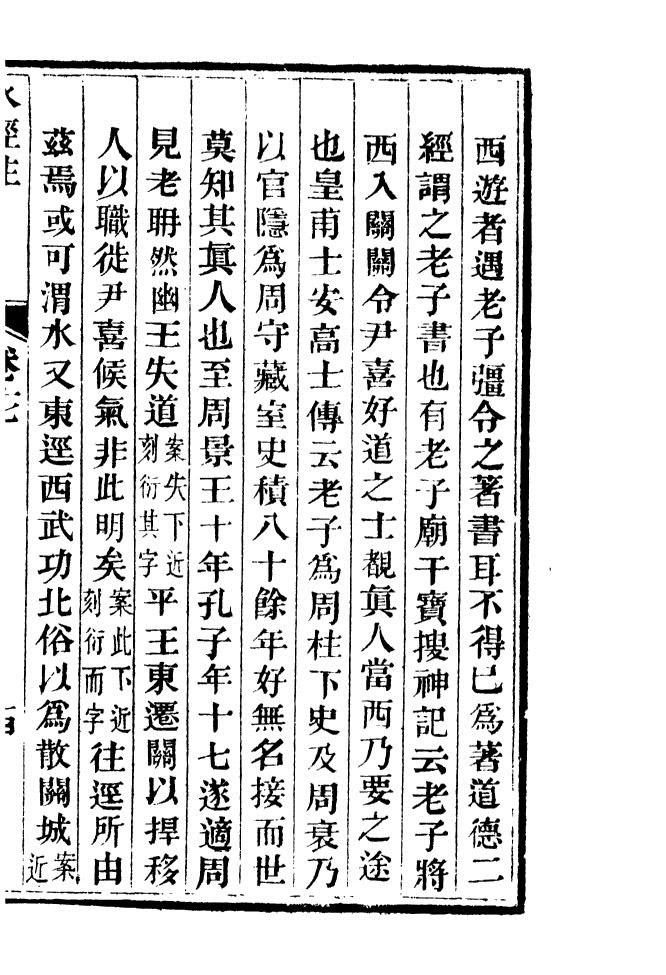 西遊者遇老子彊令之著書耳不得已爲著道德二
經謂之老子書也有老子廟干寶搜神記云老子將
西入關關令尹喜好道之士覩眞人當西乃要之途
也皇甫士安高士傳云老子爲周柱下史及周衰乃
以官隱爲周守藏室史積八十餘年好無名接而世
莫知其眞人也至周景王十年孔子年十七遂適周
見老聃然幽王失道案失下近刻衍其字平王東遷關以捍移
人以職徙尹喜候氣非此明矣案此下近刻衍而字往逕所由
茲焉或可渭水又東逕西武功北俗以爲散關城案近
水經注 卷十七